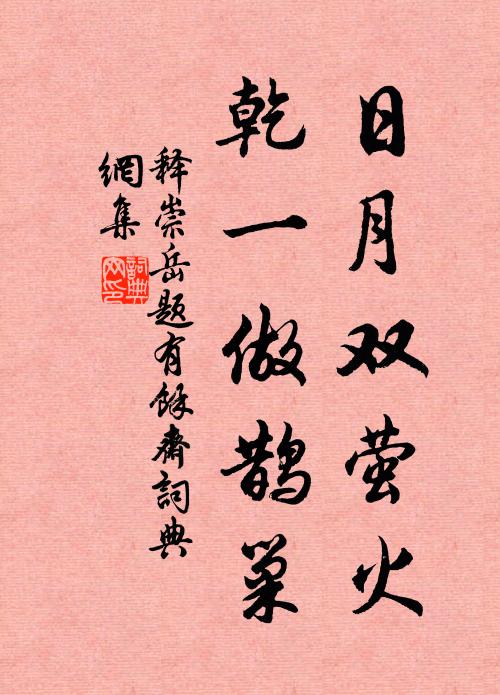 日月双萤火
乾一做鹊巢
释崇岳题有馀斋詞典
網集
詞典
网印